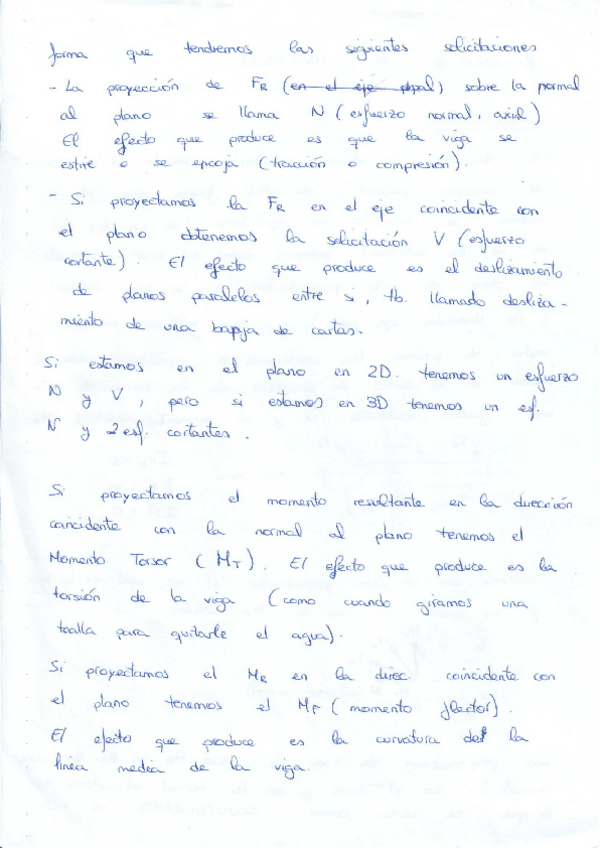 forma que tendremos las siguientes solicitaciones
- La proyección de FR (en el eje ppal) sobre la normal
al plano se llama N (esfuerzo normal, axial)
El efecto que produce es que la viga se
estire o se encoja (tracción o compresión).
- Si proyectamos la FR en el eje coincidente con
el plano obtenemos la solicitación V (esfuerzo
cortante). El efecto que produce es el deslizamiento
de planos paralelos entre si, tb. llamado desliza-
miento de una baraja de cartas.
Si estamos en el plano en 2D. tenemos un esfuerzo
N y V, pero si estamos en 3D tenemos un esf.
N y 2 esf. cortantes.
Si proyectamos el momento resultante en la dirección
coincidente con la normal al plano tenemos el
Momento Torsor (MT). El efecto que produce es la
torsión de la viga (como cuando giramos una
toalla para quitarle el agua).
Si proyectamos el MR en la direc. coincidente con
el plano tenemos el MF (momento flector).
El efecto que produce es la curvatura del la
linea media de la viga.